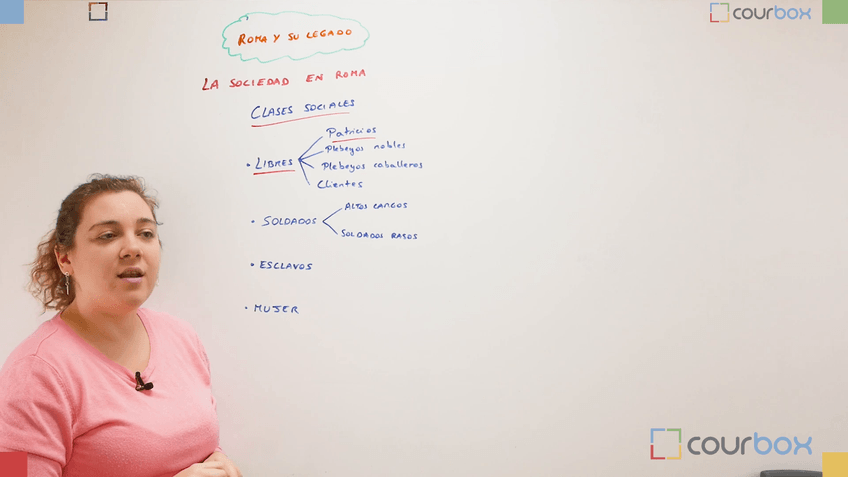 courbox
ROMA Y SU LEGADO
LA SOCIEDAD EN ROMA
CLASES SOCIALES
• LIBRES
Patricios
Plebeyos nobles
Plebeyos caballeros
Clientes
• SOLDADOS
ALTOS CARGOS
SOLDADOS RASOS
• ESCLAVOS
• MUJER
courbox